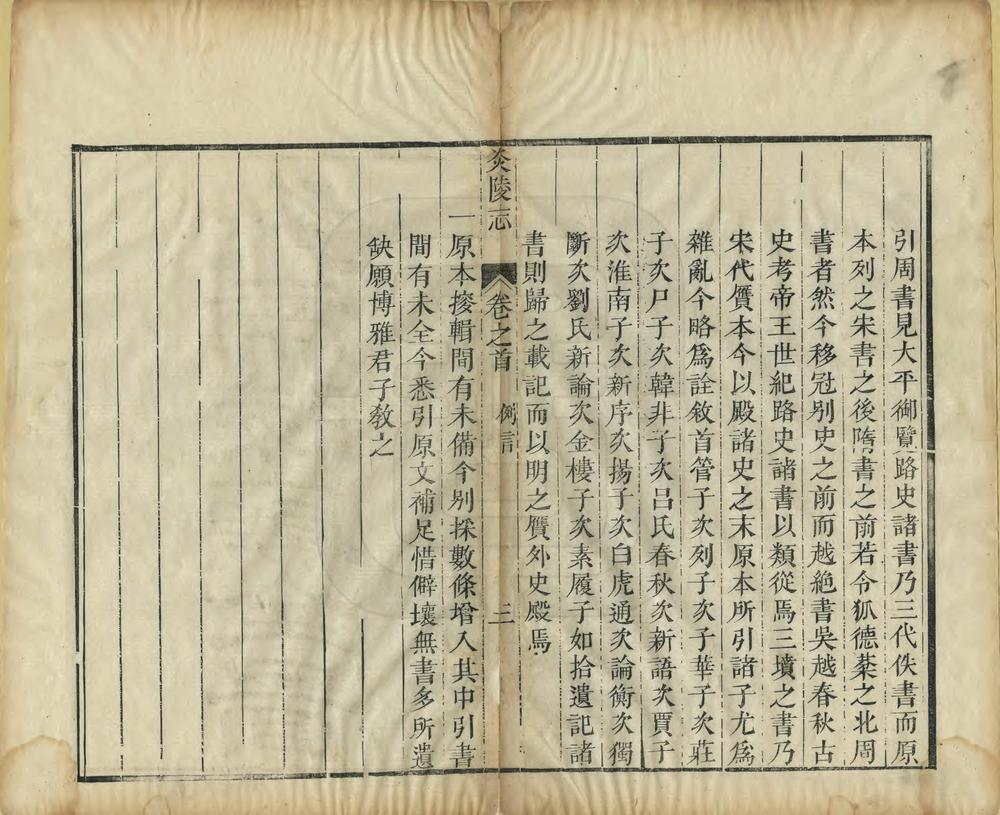 引周書見大平御覽路史諸書乃三代佚書而原
本列之宋書之後隋書之前若令狐德棻之北周
書者然今移冠别史之前而越絶書吳越春秋古
史考帝王世紀路史諸書以類從焉三墳之書乃
宋代贋本今以殿諸史之末原本所引諸子尤爲
雜亂今略爲詮敘首管子次列子次子華子次莊
子次尸子次韓非子次呂氏春秋次新語次賈子
次淮南子次新序次揚子次白虎通次論衡次獨
斷次劉氏新論次金樓子次素履子如拾遺記諸
書則歸之載記而以明之贋外史殿焉
炎陵志 卷之首 例言 三
一原本搜輯間有未備今别採數條增入其中引書
間有未全今悉引原文補足惜僻壤無書多所遺
缺願博雅君子敎之